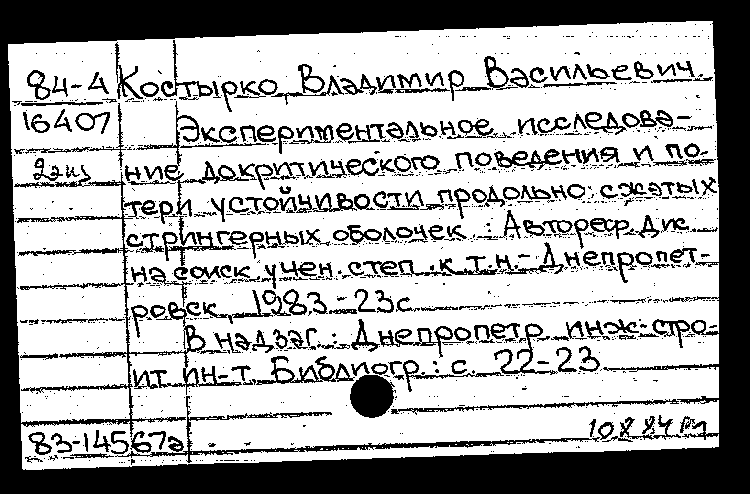 84-4 Костырко, Владимир Васильевич.
16407 Экспериментальное исследова-
2экз ние докритического поведения и по-
тери устойчивости продольно-сжатых
стрингерных оболочек : Автореф. дис.
на соиск. учен. степ. к.т.н. - Днепропет-
ровск, 1983. - 23с
В надзаг. : Днепропетр. инж.-стро-
ит. ин-т. Библиогр.: с. 22-23
83-14567а 108 84